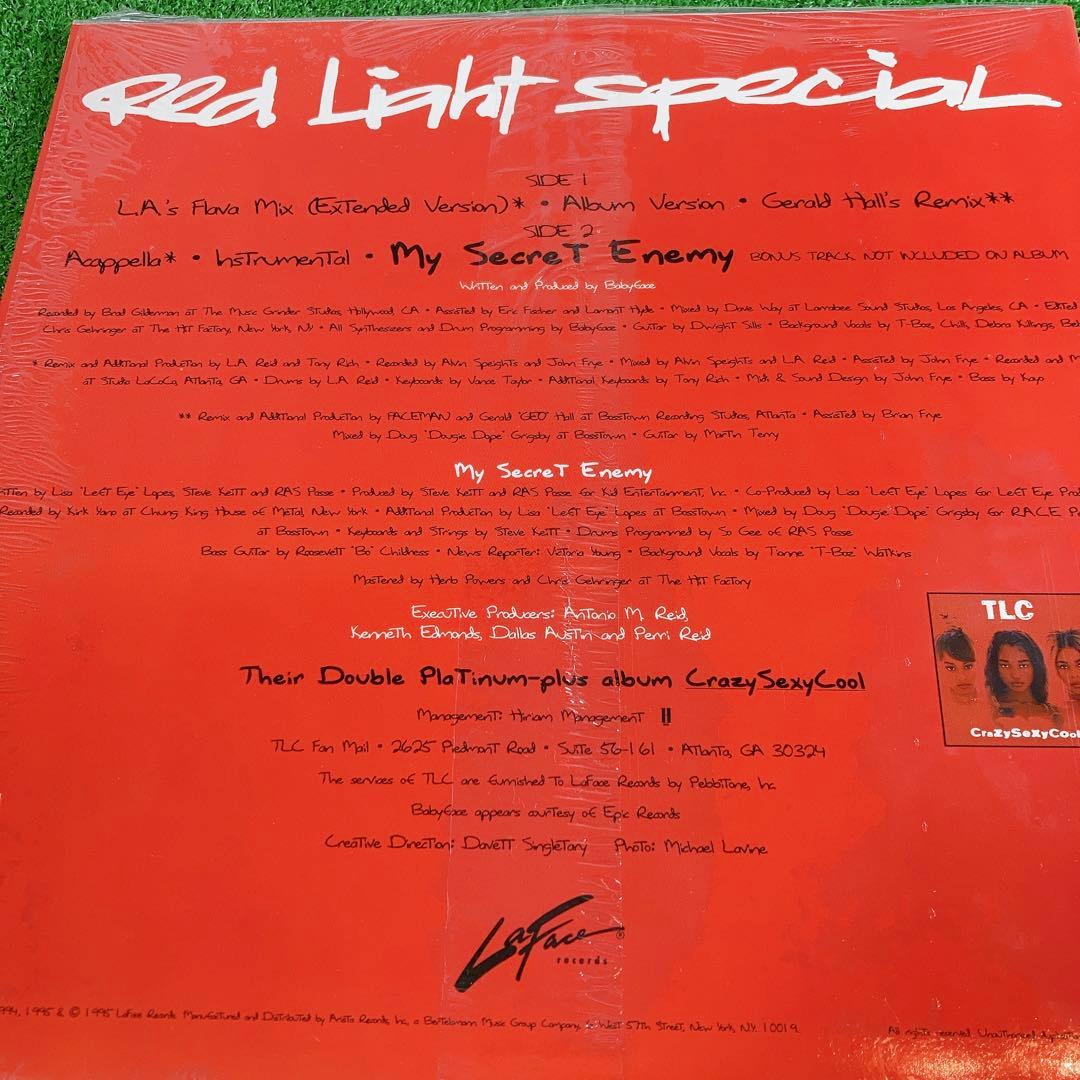 Red Light Special
SIDE 1
L.A.'s Flava Mix (Extended Version)* • Album Version • Gerald Hall's Remix**
SIDE 2
Acappella* • Instrumental • My Secret Enemy BONUS TRACK NOT INCLUDED ON ALBUM
Written and Produced by Babyface
Recorded by Brad Gilderman at The Music Grinder Studios, Hollywood, CA • Assisted by Eric Fischer and Lamont Hyde • Mixed by Dave Way at Larrabee Sound Studios, Los Angeles, CA • Edited
Chris Gehringer at The Hit Factory, New York, NY • All Synthesizers and Drum Programming by Babyface • Guitar by Dwight Sills • Background Vocals by T-Boz, Chilli, Debra Killings,
* Remix and Additional Production by L.A. Reid and Tony Rich • Recorded by Alvin Speights and John Frye • Mixed by Alvin Speights and L.A. Reid • Assisted by John Frye • Recorded and
at Studio LaCoCo, Atlanta, GA • Drums by L.A. Reid • Keyboards by Vance Taylor • Additional Keyboards by Tony Rich • Midi & Sound Design by John Frye • Bass by Kayo
** Remix and Additional Production by FACEMAN and Gerald "GEO" Hall at BossTown Recording Studios, Atlanta • Assisted by Brian Frye
Mixed by Doug "Dougie Dope" Grigsby at BossTown • Guitar by Martin Terry
My Secret Enemy
by Lisa "Left Eye" Lopes, Steve Keitt and RAS Posse • Produced by Steve Keitt and RAS Posse for Kid Entertainment, Inc. • Co-Produced by Lisa "Left Eye" Lopes for Left Eye
Recorded by Kirk Yano at Chung King House of Metal, New York • Additional Production by Lisa "Left Eye" Lopes at BossTown • Mixed by Doug "Dougie Dope" Grigsby for R.A.C.E.
at BossTown • Keyboards and Strings by Steve Keitt • Drums Programmed by So Gee of RAS Posse
Bass Guitar by Roosevelt "Bo" Childress • News Reporter: Victoria Young • Background Vocals by Tionne "T-Boz" Watkins
Mastered by Herb Powers and Chris Gehringer at The Hit Factory
Executive Producers: Antonio M. Reid,
Kenneth Edmonds, Dallas Austin and Perri Reid
TLC
Their Double Platinum-plus album CrazySexyCool
Management: Hiriam Management
CraZySeXyCool
TLC Fan Mail • 2625 Piedmont Road • Suite 56-161 • Atlanta, GA 30324
The services of TLC are furnished to LaFace Records by Pebbitone, Inc.
Babyface appears courtesy of Epic Records
Creative Direction: Davett Singletary Photo: Michael Lavine
LaFace ®
records
1995 & © 1995 LaFace Records. Manufactured and Distributed by Arista Records, Inc., a Bertelsmann Music Group Company, 6 West 57th Street, New York, N.Y. 10019.
All rights reserved. Unauthorized